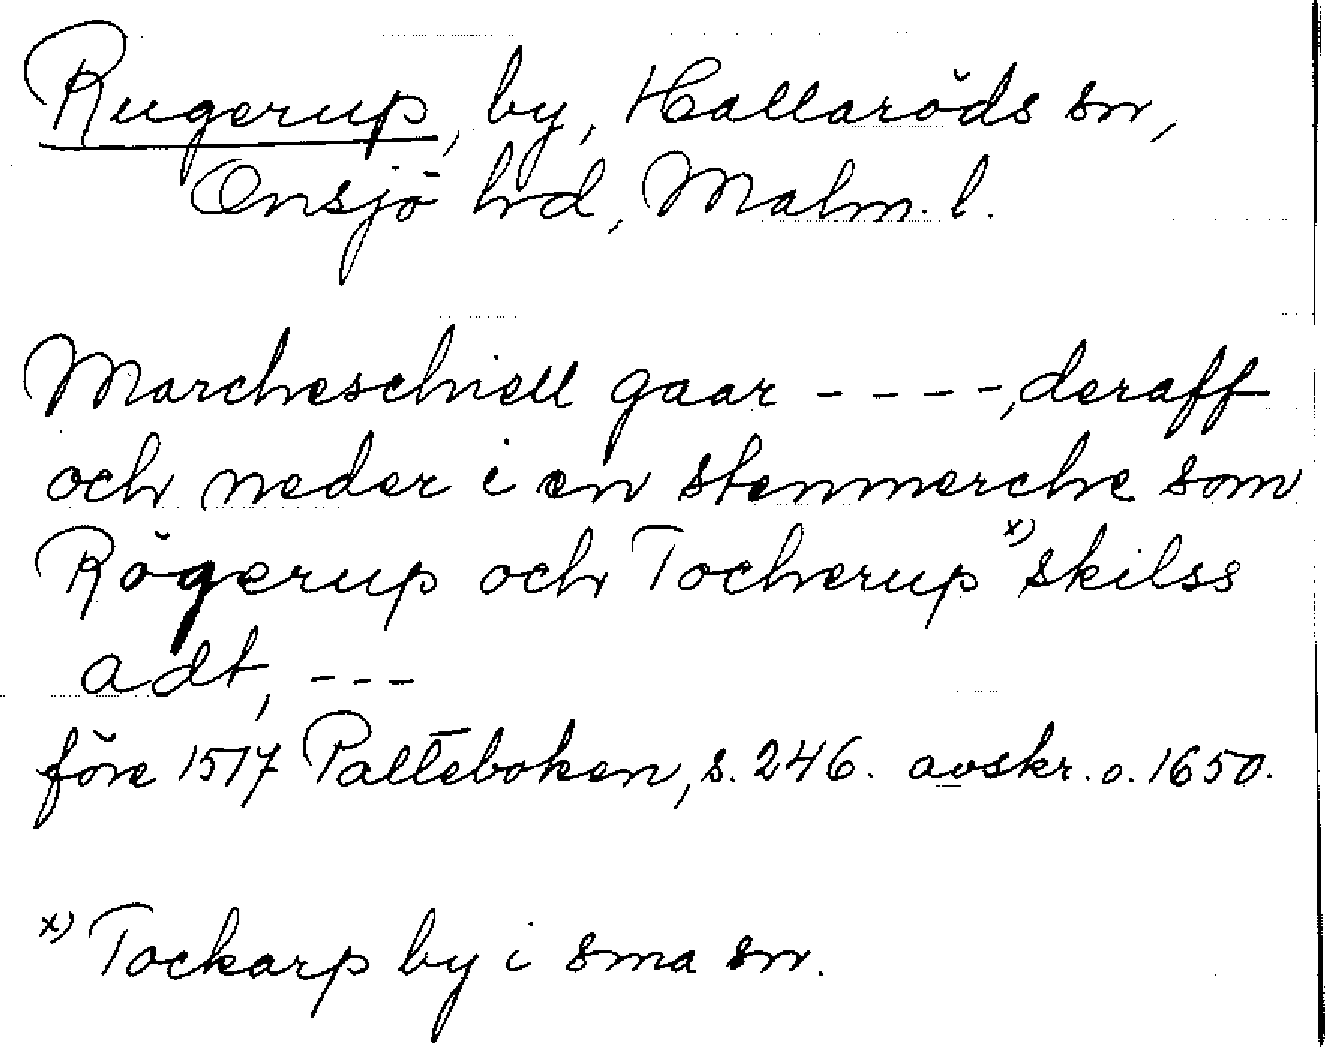 Rugerup, by, Hallaröds sn,
Onsjö hd, Malm. l.
Marcheschiell gaar - - - -, deraff
och neder i en stenmerche som
Rögerup och Tocherup x) skilss
adt, - - -
före 1517 Palteboken, s. 246. avskr. o. 1650.
x) Tockarp by i sma sn.